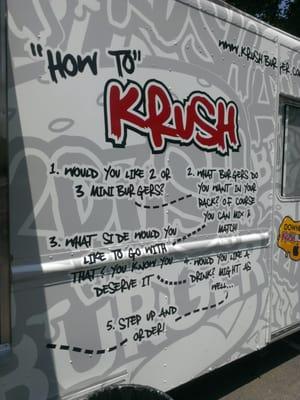 www.KRUSHBURGER.CO
"HOW TO"
KRUSH
1. WOULD YOU LIKE 2 OR
3 MINI BURGERS?
2. WHAT BURGERS DO
YOU WANT IN YOUR
PACK? OF COURSE
YOU CAN MIX &
MATCH
3. WHAT SIDE WOULD YOU
LIKE TO GO WITH
THAT? YOU KNOW YOU
DESERVE IT
4. WOULD YOU LIKE A
DRINK? MIGHT AS
WELL...
5. STEP UP AND
ORDER!